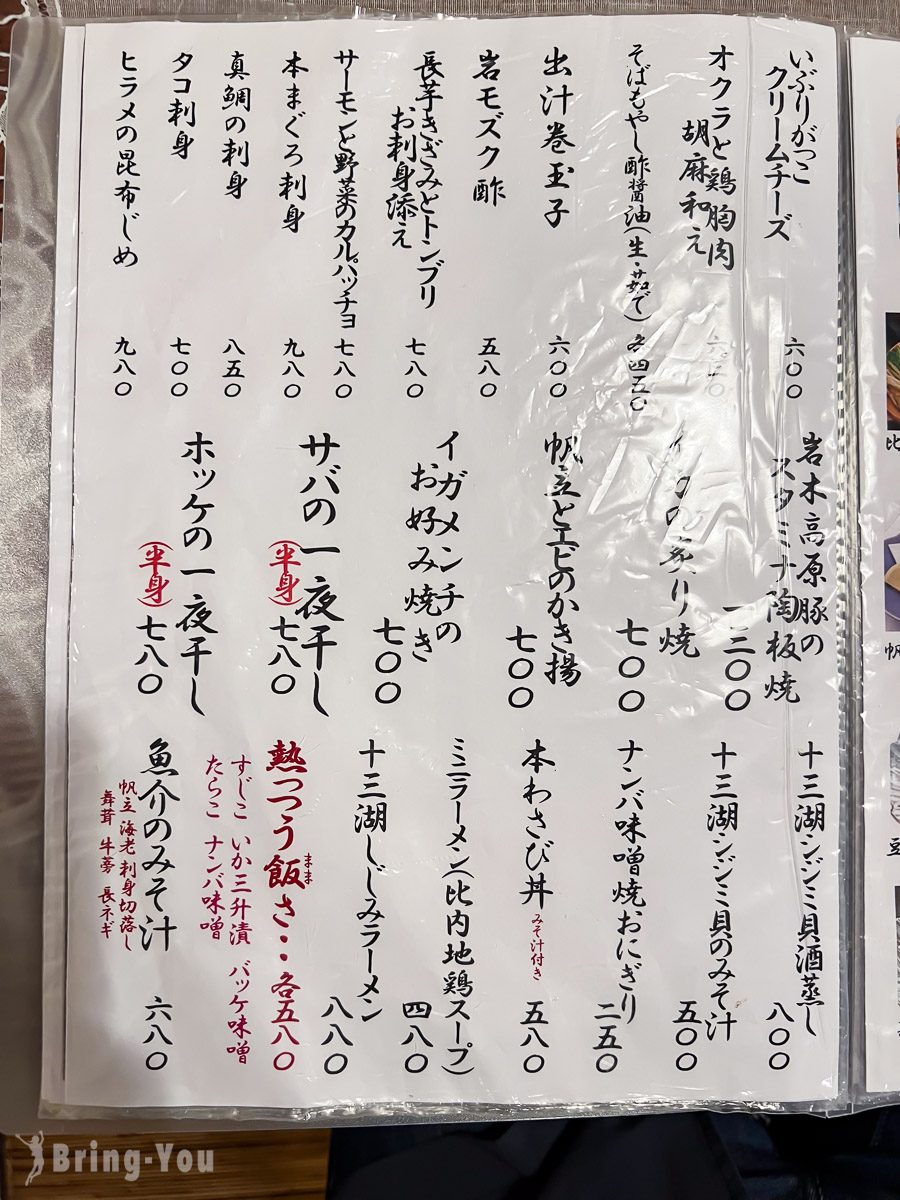 いぶりがっこ
クリームチーズ
六〇〇
オクラと鶏胸肉
胡麻和え
そばもやし酢醤油(生・茹で)
各四五〇
出汁巻玉子
六〇〇
岩モズク酢
五八〇
長芋きざみとトンブリ
お刺身添え
七八〇
サーモンと野菜のカルパッチョ
七八〇
本まぐろ刺身
九八〇
真鯛の刺身
八五〇
タコ刺身
七〇〇
ヒラメの昆布じめ
九八〇
岩木高原豚の
スタミナ陶板焼
一三〇〇
の炙り焼
七〇〇
帆立とエビのかき揚
七〇〇
イガメンチの
お好み焼き
七〇〇
サバの一夜干し
(半身)七八〇
ホッケの一夜干し
(半身)七八〇
十三湖シジミ貝酒蒸し
八〇〇
十三湖シジミ貝のみそ汁
五〇〇
ナンバ味噌焼おにぎり
二五〇
本わさび丼 みそ汁付き
五八〇
ミニラーメン(比内地鶏スープ)
四八〇
十三湖しじみラーメン
八八〇
熱つつう飯さ・・各五八〇
まま
すじこ いか三升漬 バッケ味噌
たらこ ナンバ味噌
魚介のみそ汁
六八〇
帆立 海老 刺身切落し
舞茸 牛蒡 長ネギ
比
帆
豆
Bring-You